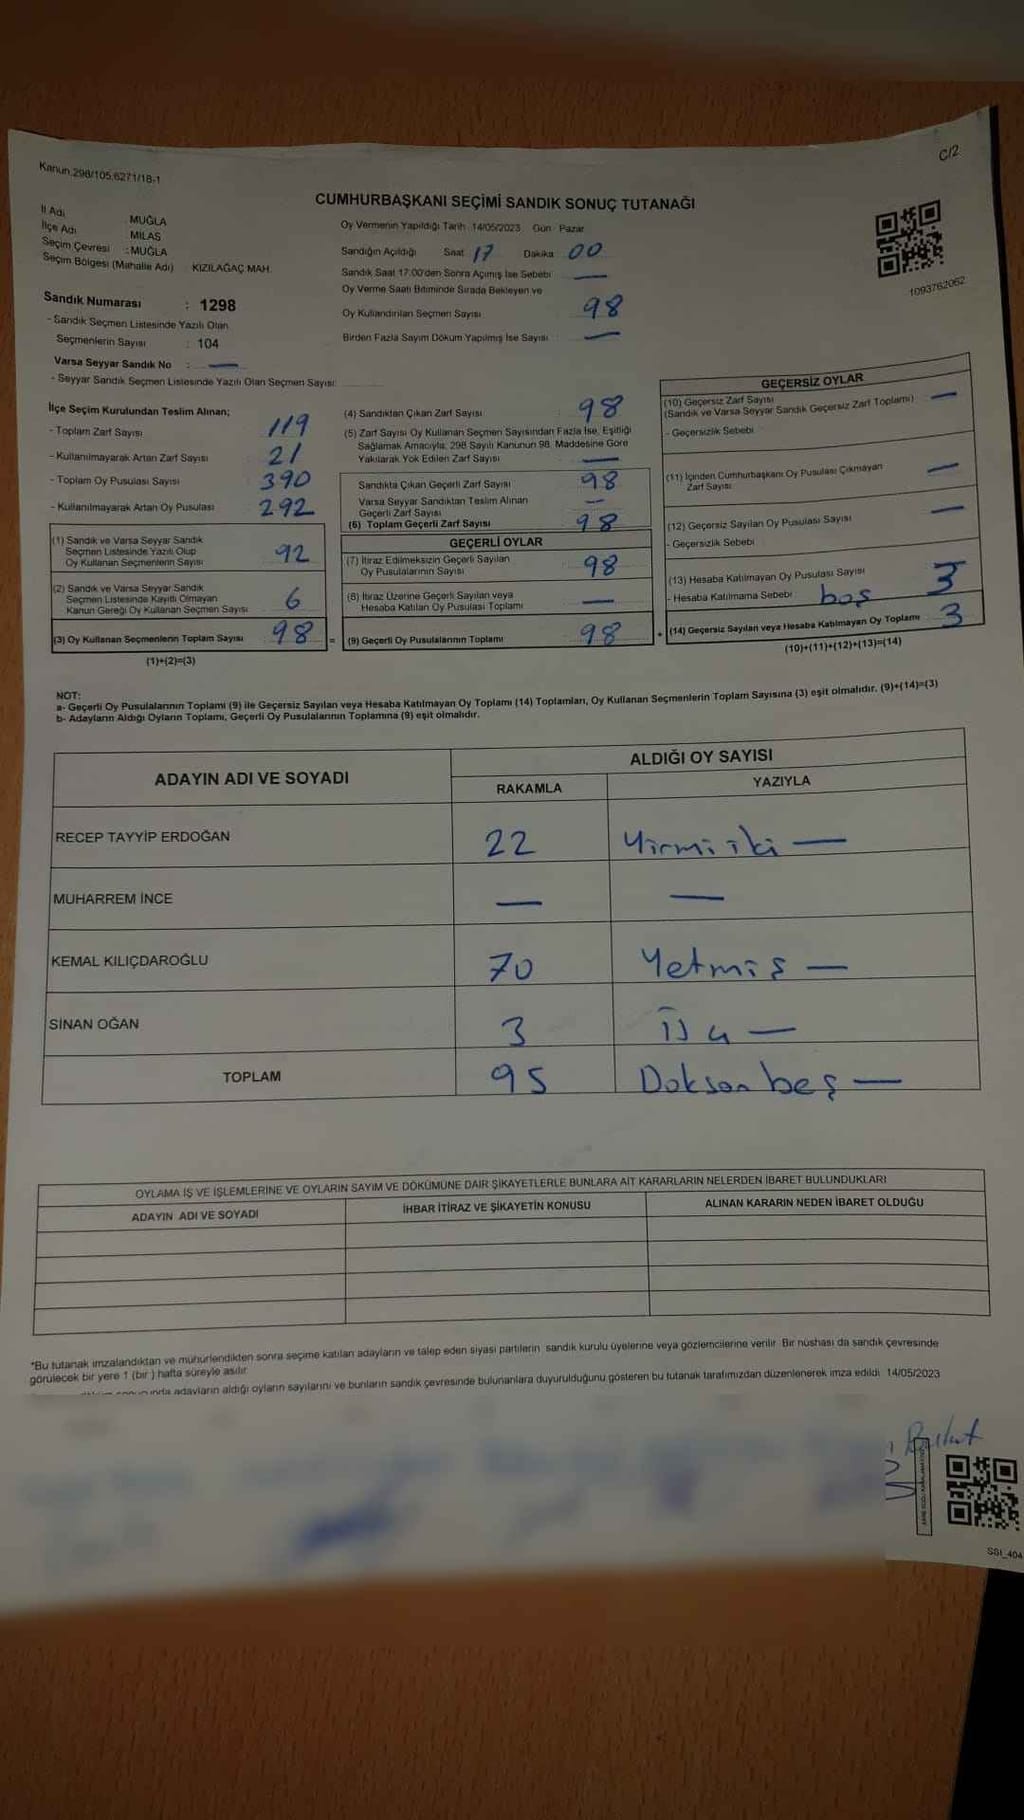 Kanun.298/105,6271/18-1
C/2
CUMHURBAŞKANI SEÇİMİ SANDIK SONUÇ TUTANAĞI
İl Adı MUĞLA
İlçe Adı MİLAS
Seçim Çevresi : MUĞLA
Seçim Bölgesi (Mahalle Adı) KIZILAĞAÇ MAH.
Oy Vermenin Yapıldığı Tarih 14/05/2023 Gün Pazar
Sandığın Açıldığı Saat 17 Dakika 00
Sandık Saat 17:00'den Sonra Açımış İse Sebebi —
Oy Verme Saati Bitiminde Sırada Bekleyen ve
Oy Kullandırılan Seçmen Sayısı 98
Birden Fazla Sayım Döküm Yapılmış İse Sayısı : —
1093762062
Sandık Numarası : 1298
- Sandık Seçmen Listesinde Yazılı Olan
Seçmenlerin Sayısı : 104
Varsa Seyyar Sandık No : —
- Seyyar Sandık Seçmen Listesinde Yazılı Olan Seçmen Sayısı:
İlçe Seçim Kurulundan Teslim Alınan;
- Toplam Zarf Sayısı 119
- Kullanılmayarak Artan Zarf Sayısı 21
- Toplam Oy Pusulası Sayısı 390
- Kullanılmayarak Artan Oy Pusulası 292
(1) Sandık ve Varsa Seyyar Sandık
Seçmen Listesinde Yazılı Olup
Oy Kullanan Seçmenlerin Sayısı 92
(2) Sandık ve Varsa Seyyar Sandık
Seçmen Listesinde Kayıtlı Olmayan
Kanun Gereği Oy Kullanan Seçmen Sayısı 6
(3) Oy Kullanan Seçmenlerin Toplam Sayısı 98 =
(1)+(2)=(3)
(4) Sandıktan Çıkan Zarf Sayısı : 98
(5) Zarf Sayısı Oy Kullanan Seçmen Sayısından Fazla İse, Eşitliği
Sağlamak Amacıyla, 298 Sayılı Kanunun 98. Maddesine Göre
Yakılarak Yok Edilen Zarf Sayısı —
Sandıkta Çıkan Geçerli Zarf Sayısı 98
Varsa Seyyar Sandıktan Teslim Alınan
Geçerli Zarf Sayısı —
(6) Toplam Geçerli Zarf Sayısı 98
GEÇERLİ OYLAR
(7) İtiraz Edilmeksizin Geçerli Sayılan
Oy Pusulalarının Sayısı 98
(8) İtiraz Üzerine Geçerli Sayılan veya
Hesaba Katılan Oy Pusulası Toplamı —
(9) Geçerli Oy Pusulalarının Toplamı 98 +
GEÇERSİZ OYLAR
(10) Geçersiz Zarf Sayısı
(Sandık ve Varsa Seyyar Sandık Geçersiz Zarf Toplamı) —
- Geçersizlik Sebebi
(11) İçinden Cumhurbaşkanı Oy Pusulası Çıkmayan
Zarf Sayısı —
(12) Geçersiz Sayılan Oy Pusulası Sayısı —
- Geçersizlik Sebebi
(13) Hesaba Katılmayan Oy Pusulası Sayısı 3
- Hesaba Katılmama Sebebi boş
(14) Geçersiz Sayılan veya Hesaba Katılmayan Oy Toplamı 3
(10)+(11)+(12)+(13)=(14)
NOT:
a- Geçerli Oy Pusulalarının Toplamı (9) ile Geçersiz Sayılan veya Hesaba Katılmayan Oy Toplamı (14) Toplamları, Oy Kullanan Seçmenlerin Toplam Sayısına (3) eşit olmalıdır. (9)+(14)=(3)
b- Adayların Aldığı Oyların Toplamı, Geçerli Oy Pusulalarının Toplamına (9) eşit olmalıdır.
ADAYIN ADI VE SOYADI
ALDIĞI OY SAYISI
RAKAMLA YAZIYLA
RECEP TAYYİP ERDOĞAN 22 Yirmi iki —
MUHARREM İNCE — —
KEMAL KILIÇDAROĞLU 70 Yetmiş —
SİNAN OĞAN 3 Üç —
TOPLAM 95 Doksan beş —
OYLAMA İŞ VE İŞLEMLERİNE VE OYLARIN SAYIM VE DÖKÜMÜNE DAİR ŞİKAYETLERLE BUNLARA AİT KARARLARIN NELERDEN İBARET BULUNDUKLARI
ADAYIN ADI VE SOYADI İHBAR İTİRAZ VE ŞİKAYETİN KONUSU ALINAN KARARIN NEDEN İBARET OLDUĞU
*Bu tutanak imzalandıktan ve mühürlendikten sonra seçime katılan adayların ve talep eden siyasi partilerin sandık kurulu üyelerine veya gözlemcilerine verilir. Bir nüshası da sandık çevresinde
görülecek bir yere 1 (bir ) hafta süreyle asılır.
adayların aldığı oyların sayılarını ve bunların sandık çevresinde bulunanlara duyurulduğunu gösteren bu tutanak tarafımızdan düzenlenerek imza edildi. 14/05/2023
Bulut
SSI_404